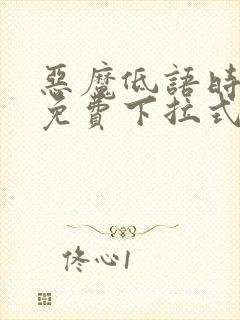 惡魔低語時
免費下拉式
佟心1